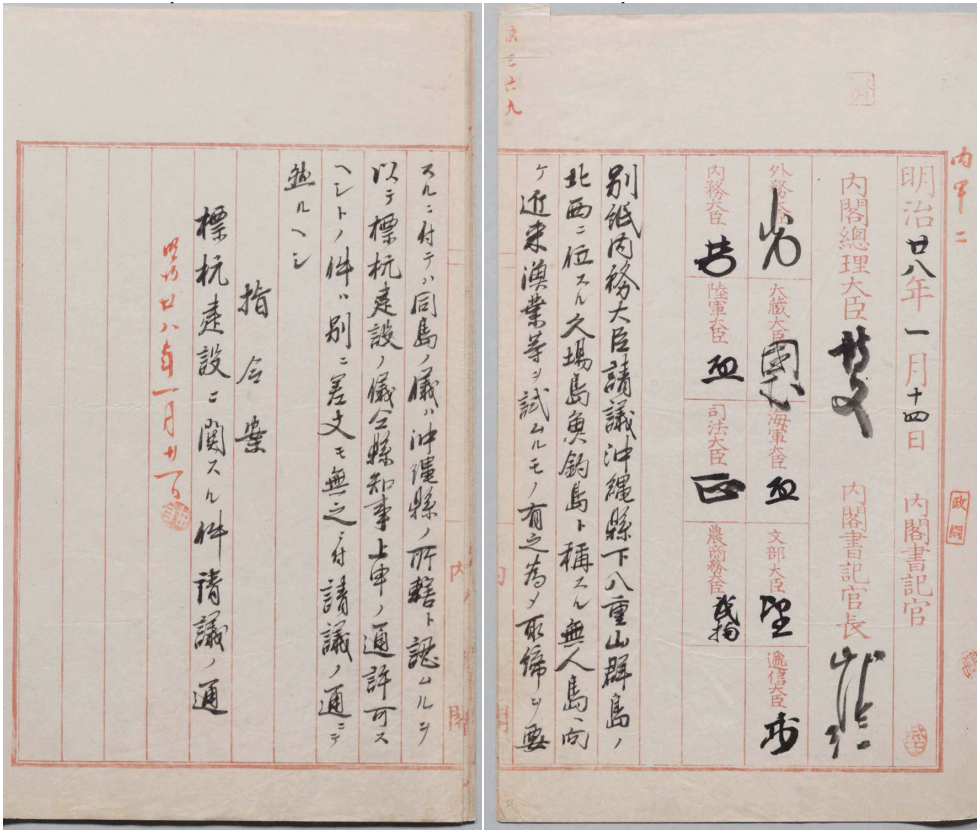 内甲二
明治廿八年一月十四日 内閣書記官
政綱
内閣總理大臣 博文 内閣書記官長
外務大臣
大藏大臣 國武
海軍大臣 西
文部大臣 望
逓信大臣
内務大臣 芳
陸軍大臣 西
司法大臣 正
農商務大臣 武揚
別紙内務大臣請議沖縄縣下八重山群島ノ
北西ニ位スル久場島魚釣島ト稱スル無人島ヘ向
ケ近来漁業等ヲ試ムルモノ有之為メ取締ヲ要
スルニ付テハ同島ノ儀ハ沖縄縣ノ所轄ト認ムルヲ
以テ標杭建設ノ儀仝縣知事上申ノ通許可ス
ヘシトノ件ハ別ニ差支モ無之ニ付請議ノ通ニテ
然ルヘシ
指令案
標杭建設ニ関スル件請議ノ通
明治廿八年一月廿一日
内閣